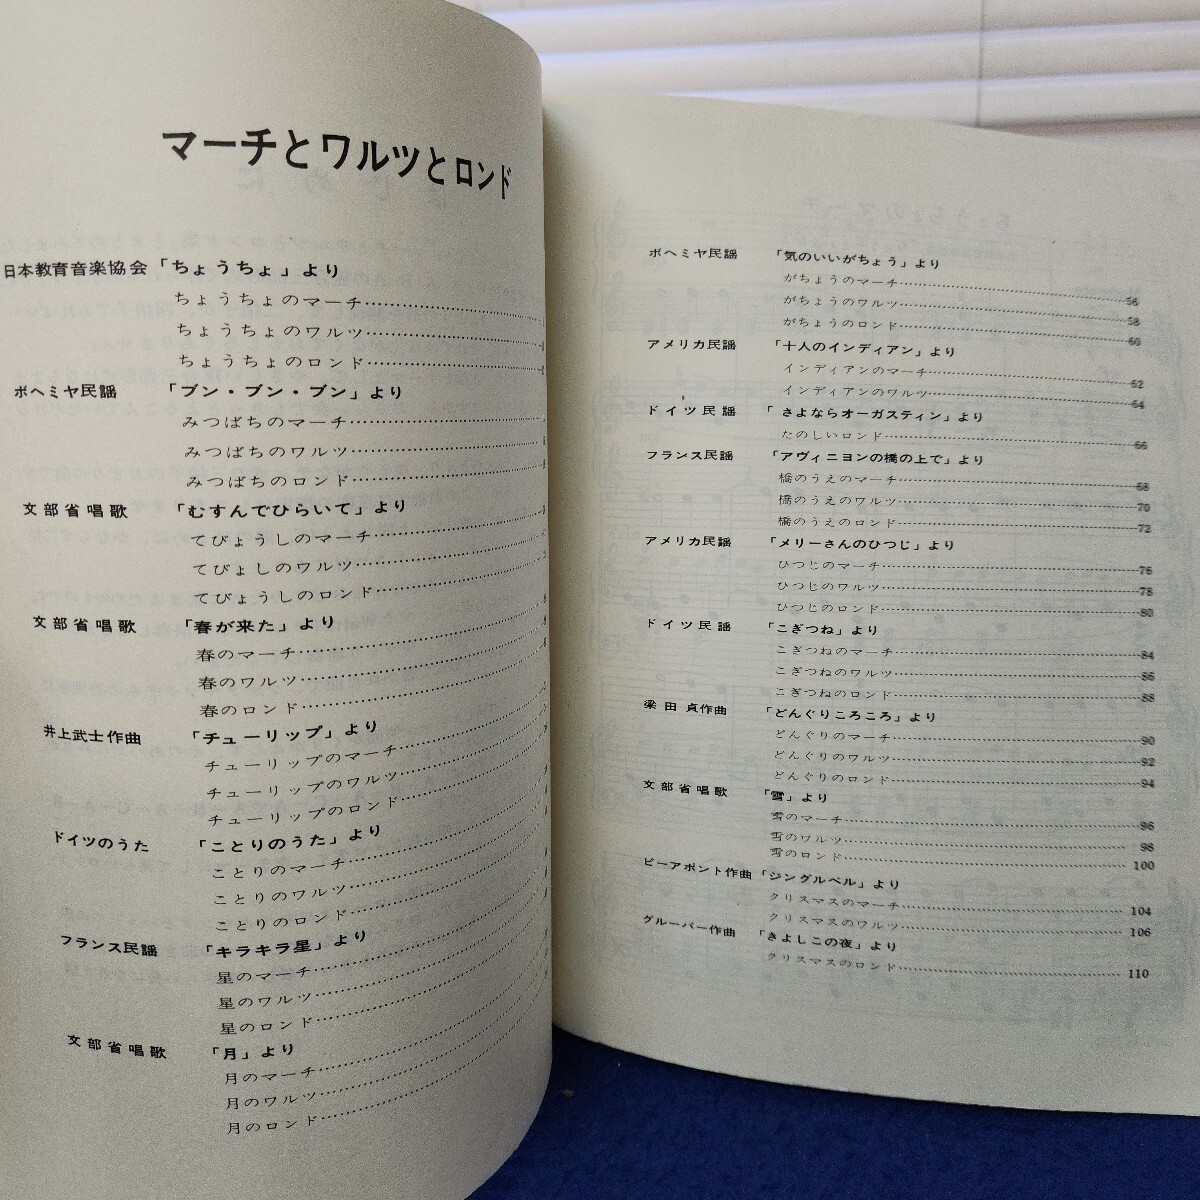 マーチとワルツとロンド
日本教育音楽協会 「ちょうちょ」より
ちょうちょのマーチ
ちょうちょのワルツ
ちょうちょのロンド
ボヘミヤ民謡 「ブン・ブン・ブン」より
みつばちのマーチ
みつばちのワルツ
みつばちのロンド
文部省唱歌 「むすんでひらいて」より
てびょうしのマーチ
てびょしのワルツ
てびょうしのロンド
文部省唱歌 「春が来た」より
春のマーチ
春のワルツ
春のロンド
井上武士作曲 「チューリップ」より
チューリップのマーチ
チューリップのワルツ
チューリップのロンド
ドイツのうた 「ことりのうた」より
ことりのマーチ
ことりのワルツ
ことりのロンド
フランス民謡 「キラキラ星」より
星のマーチ
星のワルツ
星のロンド
文部省唱歌 「月」より
月のマーチ
月のワルツ
月のロンド
ボヘミヤ民謡 「気のいいがちょう」より
がちょうのマーチ 56
がちょうのワルツ 58
がちょうのロンド 60
アメリカ民謡 「十人のインディアン」より
インディアンのマーチ 62
インディアンのワルツ 64
ドイツ民謡 「さよならオーガスティン」より
たのしいロンド 66
フランス民謡 「アヴィニヨンの橋の上で」より
橋のうえのマーチ 68
橋のうえのワルツ 70
橋のうえのロンド 72
アメリカ民謡 「メリーさんのひつじ」より
ひつじのマーチ 76
ひつじのワルツ 78
ひつじのロンド 80
ドイツ民謡 「こぎつね」より
こぎつねのマーチ 84
こぎつねのワルツ 86
こぎつねのロンド 88
梁田 貞作曲 「どんぐりころころ」より
どんぐりのマーチ 90
どんぐりのワルツ 92
どんぐりのロンド 94
文部省唱歌 「雪」より
雪のマーチ 96
雪のワルツ 98
雪のロンド 100
ピーアポント作曲 「ジングルベル」より
クリスマスのマーチ 104
クリスマスのワルツ 106
グルーバー作曲 「きよしこの夜」より
クリスマスのロンド 110